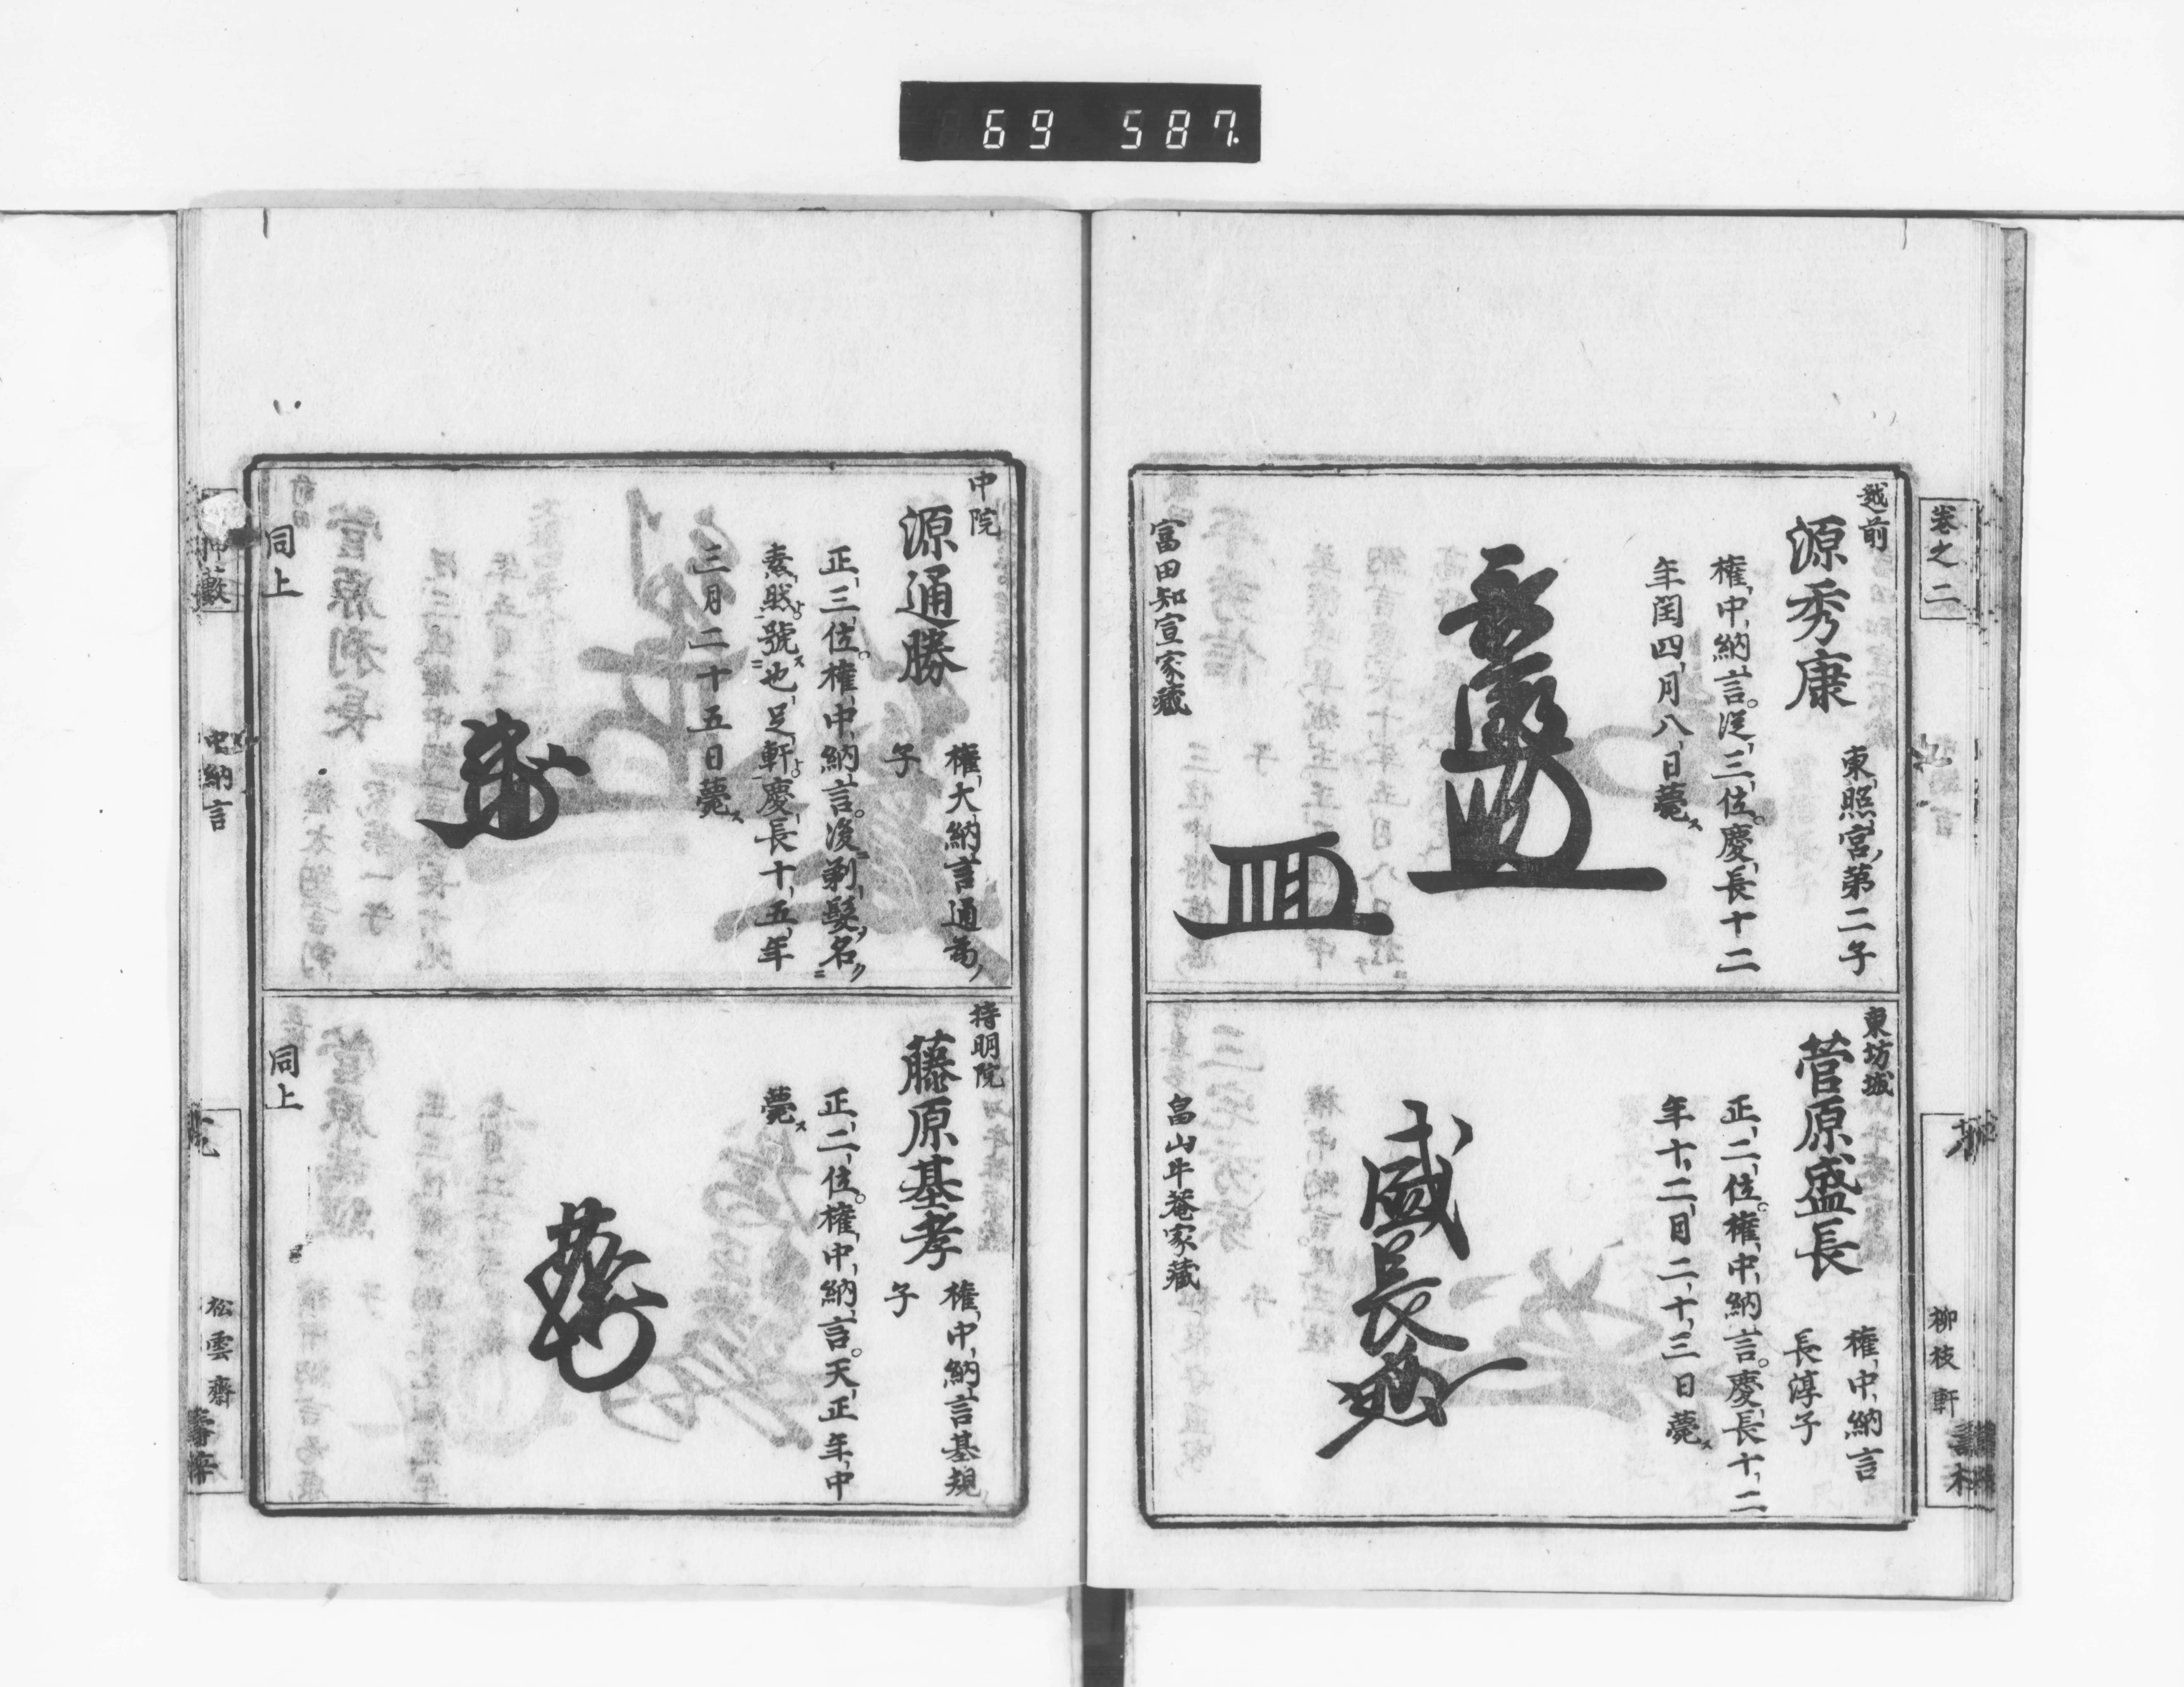 69 587
卷之二
柳枝軒
越前
源秀康
東照宮第二子
權中納言。從三位。慶長十二
年閏四月八日薨ス
富田知宣家藏
東坊城
菅原盛長
權中納言
長淳子
正二位。權中納言。慶長十二
年十二月二十三日薨ス
盛長
畠山牛菴家藏
中院
源通勝
權大納言通爲
子
正三位。權中納言。後剃髮名
素然號也足軒慶長十五年
三月二十五日薨ス
同上
持明院
藤原基孝
權中納言基規
子
正二位。權中納言。天正年中
薨ス
同上
中納言
松雲齋